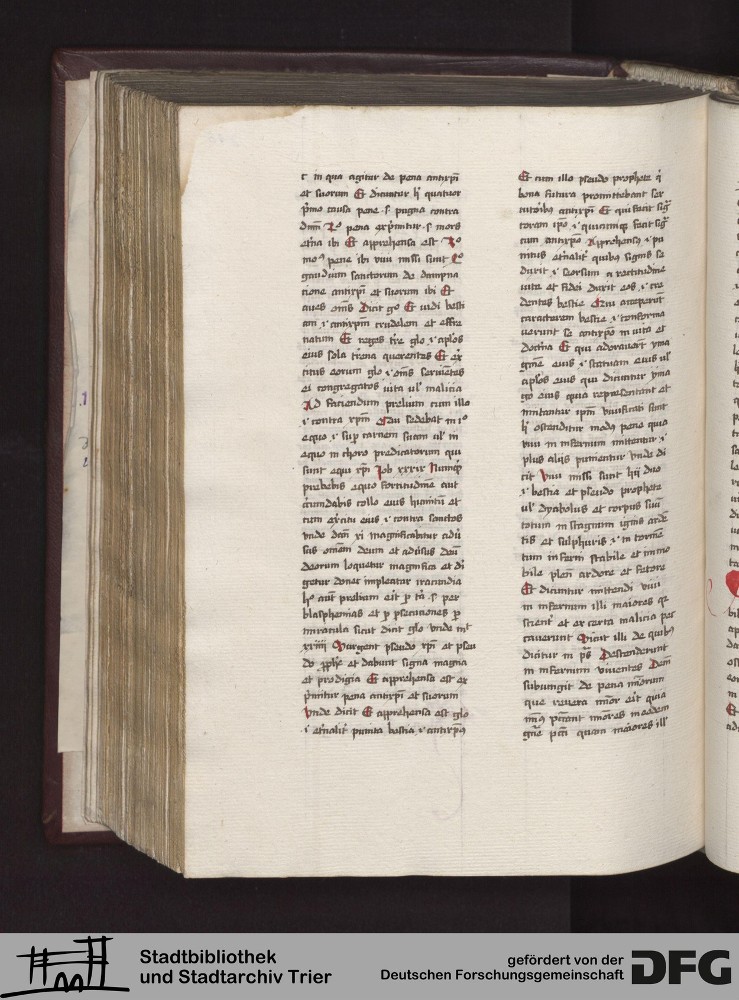 r in qua agitur de pena antixpi
et suorum Et dicuntur hic quatuor
pmo causa pene .s. pugna contra
dnm 2o pena exprimitur .s. mors
etna ibi Et apprehensa est 3o
mo pene ibi viui missi sunt 4o
gaudium sanctorum de dampna
cione antixpi et suorum ibi Et
aues oms Dicit go Et vidi besti
am .i. antixpm crudelem et effre
natum Et reges tre glo .i. aplos
eius sola trena querentes Et ex
citus eorum glo .i. oms seruietes
ei congregatos vita vl malicia
Ad faciendum prelium cum illo
.i. contra xpm Qui sedebat in
equo .i. sup carnem suam vl in
equo in choro predicatorum qui
sunt equi xpi Job xxxix Numquid
prebebis equo fortitudine aut
circumdabis collo eius hinnitu et
cum excitu eius .i. contra sanctos
vnde dan xi magnificabitur adu
sus omem deum et adusus deu
deorum loquetur magnifica et di
getur donec impleatur iracundia
hoc aut prelium erit p .s. per
blasphemias et p psecuciones p
miracula sicut dicit glo vnde mt
xxiiii Surgent pseudo xpi et pseu
do pphe et dabunt signa magna
et prodigia Et apprehensa est ex
pmitur pena antixpi et suorum
Vnde dicit Et apprehensa est glo
.i. etnalit punita bestia .i. antixpus
Et cum illo pseudo propheta q
bona futura promittebant ser
uitoribus antixpi Et qui facit sig
coram ipo .i. quicumque facit sig
cum antixpo Apprehensus .i. pu
nitus etnalit quibus signis se
duxit .i. seorsum a rectitudine
vite et fidei duxit eos .i. cre
dentes bestie Qui acceperut
caracterem bestie .i. conforma
uerunt se antixpo in vita et
doctna Et qui adorauert yma
gine eius .i. statuam eius vl
aplos eius qui dicuntur yma
go eius quia representant et
imitantur ipm viuificati sunt
hic ostenditur modus pene quia
viui in infernum mittentur .i.
plus alijs punientur vnde di
cit Viui missi sunt hij duo
.i. bestia et pseudo propheta
vl dyabolus et corpus suu
totum in stagnum ignis arde
tis et sulphuris .i. in torme
tum inferni stabile et immo
bile plen ardore et fetore
Et dicuntur mittendi viui
in infernum illi maiores
et ex certa malicia pec
cauerunt Sicut illi de quibus
dicitur in ps Descenderunt
in infernum viuentes Dein
subiungit de pena minorum
que reuera minor erit quia
minus peccant minores in eodem
gne pcti quam maiores ill
Stadtbibliothek
und Stadtarchiv Trier
gefördert von der
Deutschen Forschungsgemeinschaft
DFG